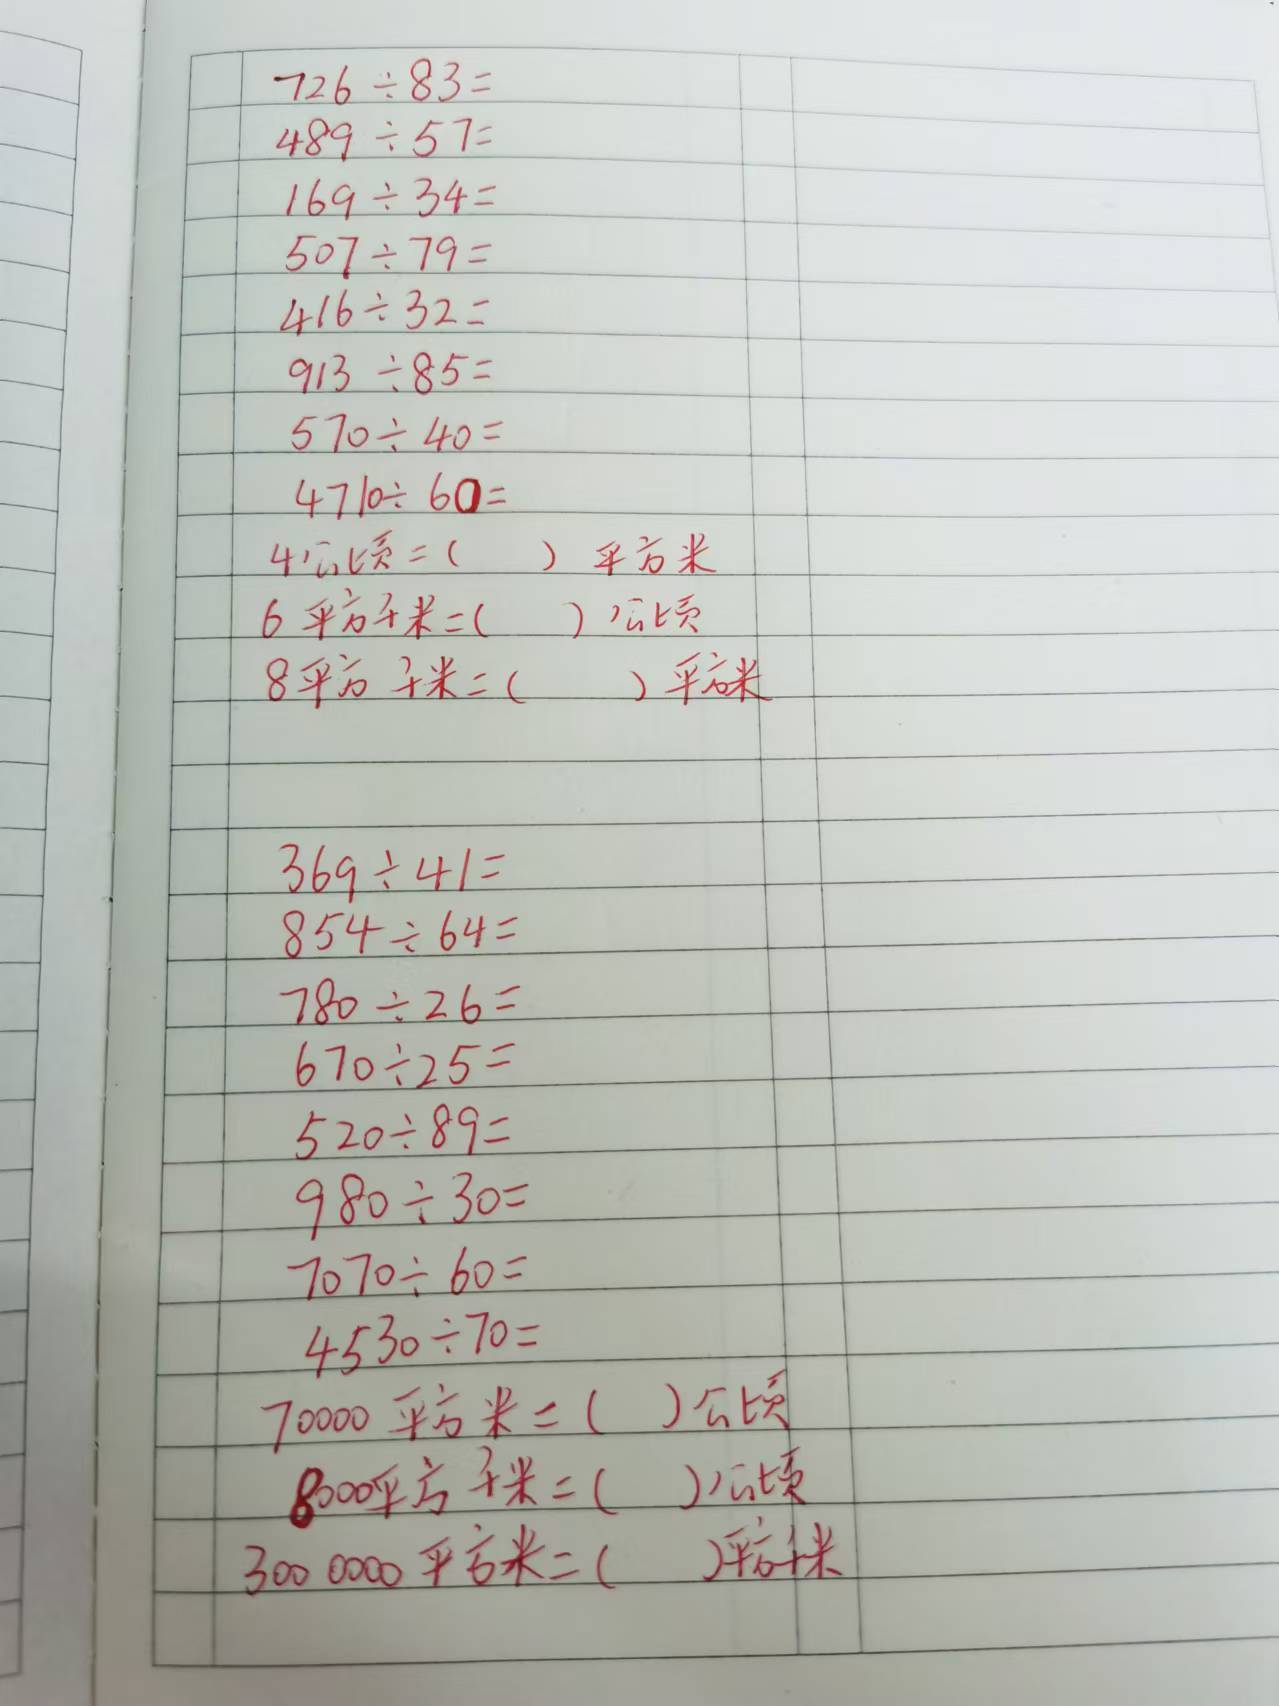 726÷83=
489÷57=
169÷34=
507÷79=
416÷32=
913÷85=
570÷40=
4710÷60=
4公顷=( )平方米
6平方千米=( )公顷
8平方千米=( )平方米
369÷41=
854÷64=
780÷26=
670÷25=
520÷89=
980÷30=
7070÷60=
4530÷70=
70000平方米=( )公顷
8000平方千米=( )公顷
3000000平方米=( )平方千米